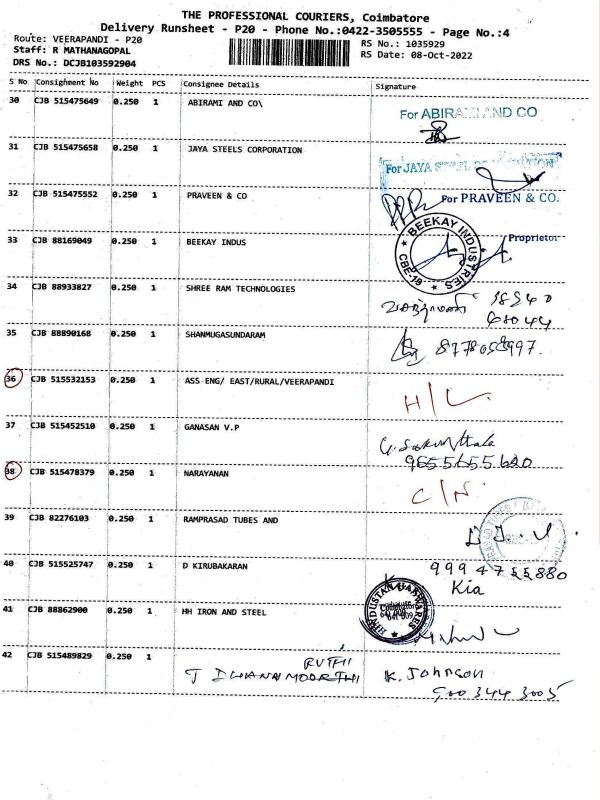 THE PROFESSIONAL COURIERS, Coimbatore
Delivery Runsheet - P20 - Phone No.:0422-3505555 - Page No.:4
Route: VEERAPANDI - P20
Staff: R MATHANAGOPAL
DRS No.: DCJB103592904
RS No.: 1035929
RS Date: 08-Oct-2022
S No Consignment No Weight PCS Consignee Details Signature
30 CJB 515475649 0.250 1 ABIRAMI AND CO\
For ABIRAMI AND CO
31 CJB 515475658 0.250 1 JAYA STEELS CORPORATION
For JAYA STEEL CORPORATION
32 CJB 515475552 0.250 1 PRAVEEN & CO
For PRAVEEN & CO.
Proprietor
33 CJB 88169049 0.250 1 BEEKAY INDUS
BEEKAY INDUSTRIES
CBE-19
34 CJB 88933827 0.250 1 SHREE RAM TECHNOLOGIES
35 CJB 88890168 0.250 1 SHANMUGASUNDARAM
36 CJB 515532153 0.250 1 ASS ENG/ EAST/RURAL/VEERAPANDI
H/L
37 CJB 515452510 0.250 1 GANASAN V.P
38 CJB 515478379 0.250 1 NARAYANAN
C/N
39 CJB 82276103 0.250 1 RAMPRASAD TUBES AND
40 CJB 515525747 0.250 1 D KIRUBAKARAN
9994755880
Kia
41 CJB 88862900 0.250 1 HH IRON AND STEEL
HINDUSTAN HARDWARES
Coimbatore
42 CJB 515489829 0.250 1
K. Johnson
900 344 3005